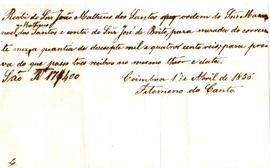 Recebi do Snr João Matheus dos Santos por ordem do Snr Mano
el Matheus
dos Santos e conta do Snr José de Brito, para mezada do corren
te mez a quantia de dezsepte mil e quatro cento reis; para pro
va do que passo tres recibos no mesmo theor e data.
São Rs 17$400 Coimbra 1 de Abril de 1836
do Canto